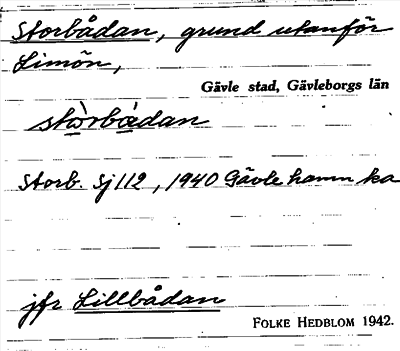 Storbådan, grund utanför
Limön,
Gävle stad, Gävleborgs län
Storb. Sj 112, 1940 Gävle hamn ka
jfr Lillbådan
FOLKE HEDBLOM 1942.